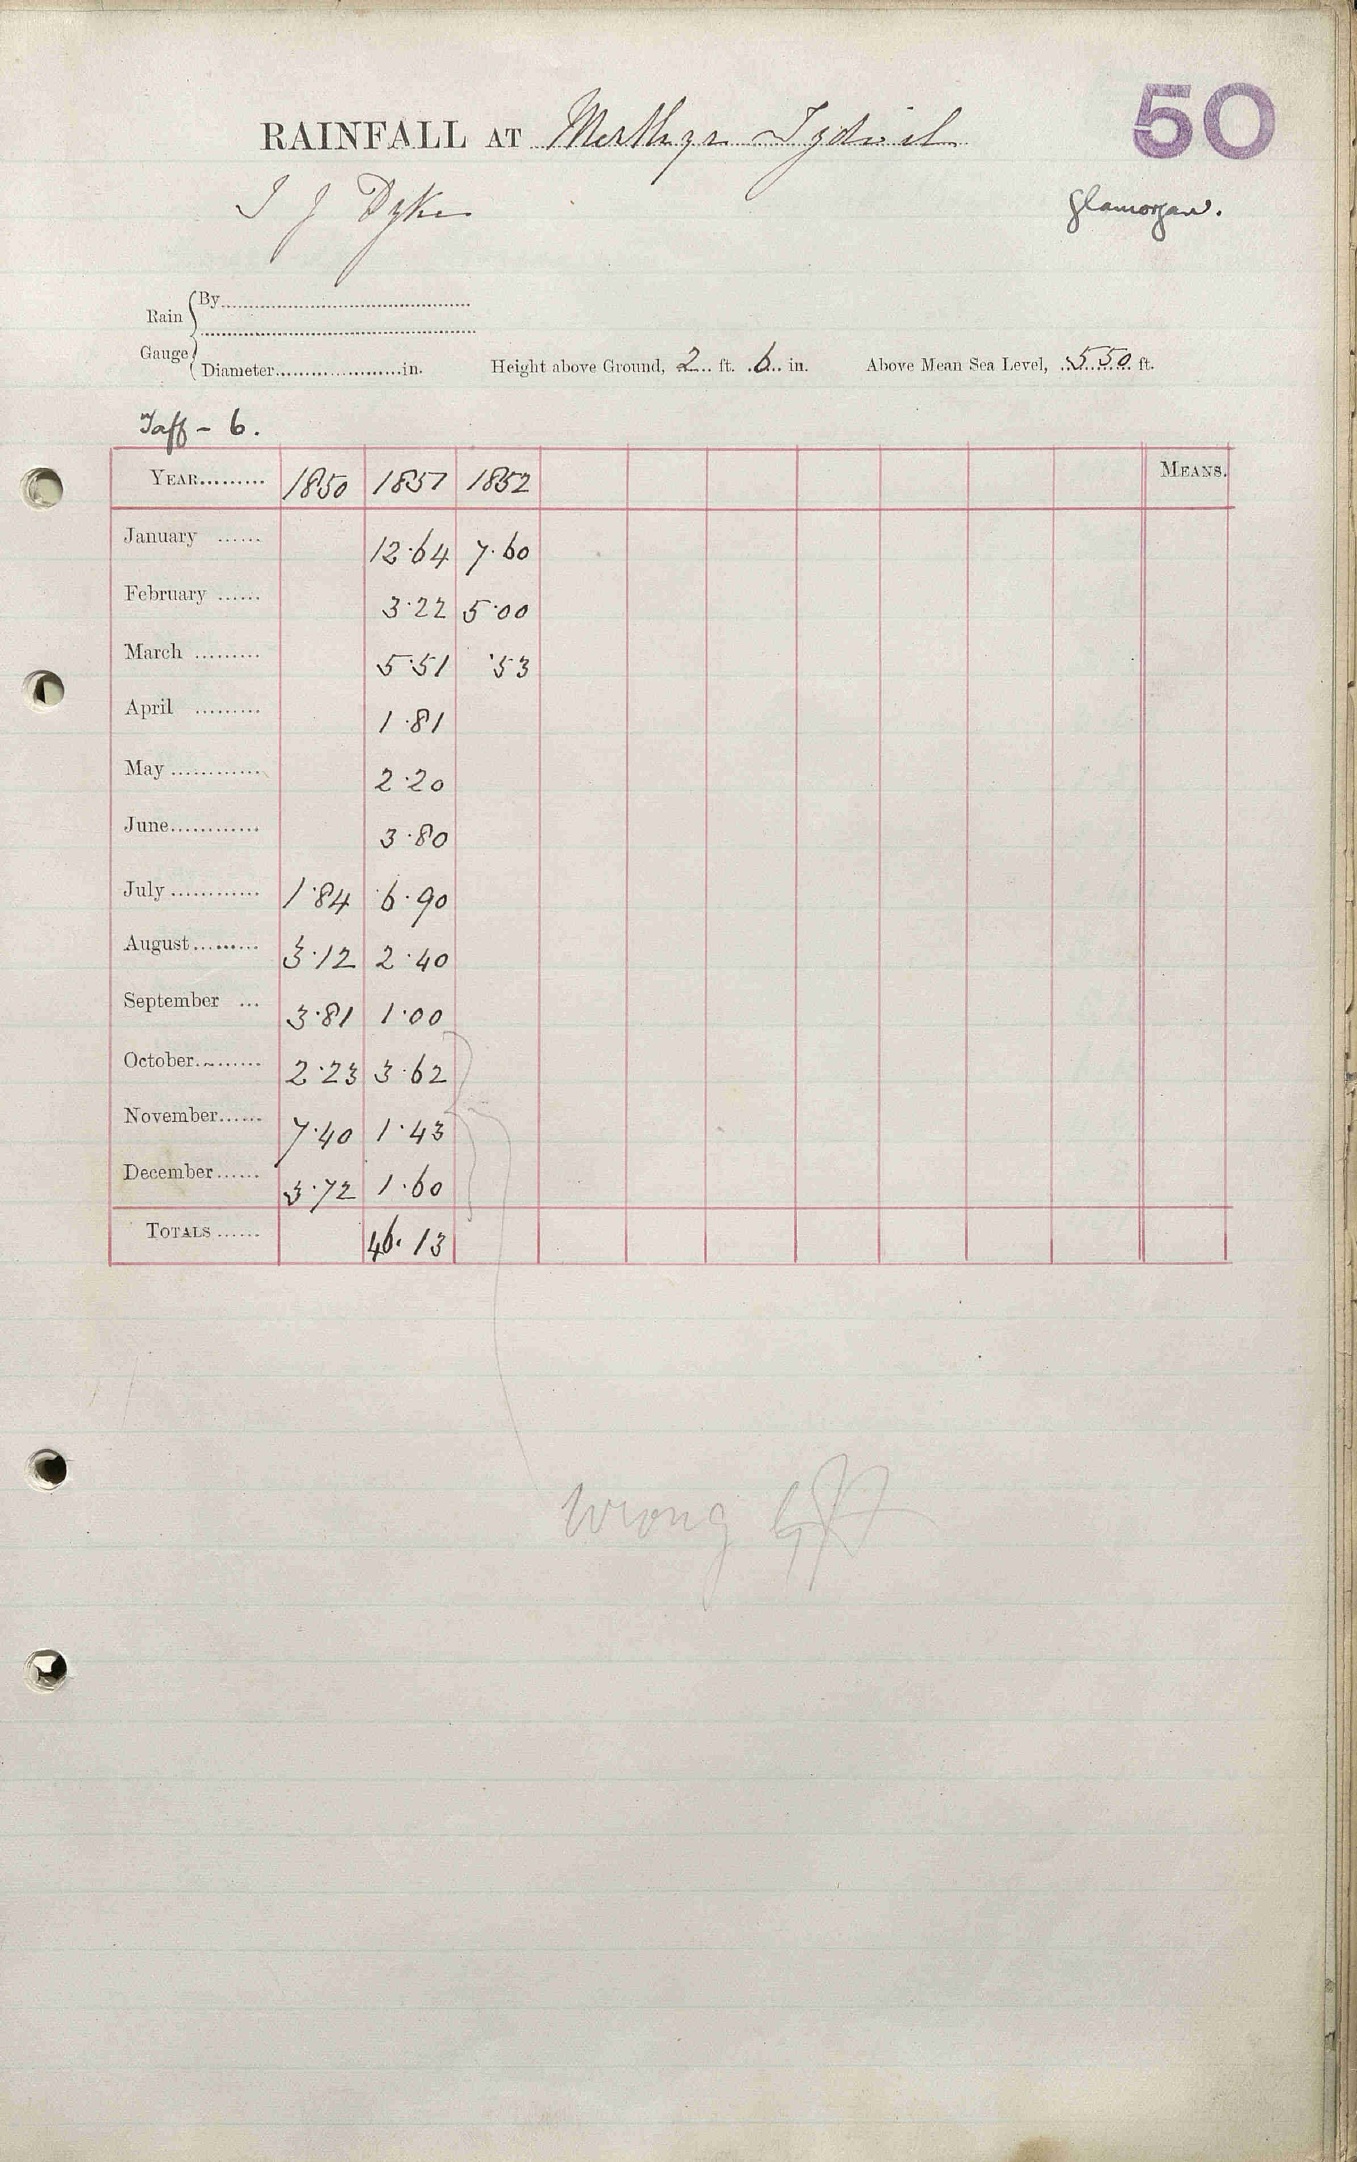 50
RAINFALL AT Merthyr Tydvil
T J Dyke
Glamorgan.
Rain Gauge
By
Diameter in.
Height above Ground, 2 ft. 6 in. Above Mean Sea Level, 550 ft.
Taff - 6.
YEAR 1850 1851 1852 MEANS.
January 12.64 7.60
February 3.22 5.00
March 5.51 .53
April 1.81
May 2.20
June 3.80
July 1.84 6.90
August 3.12 2.40
September 3.81 1.00
October 2.23 3.62
November 7.40 1.43
December 3.72 1.60
TOTALS 46.13
Wrong